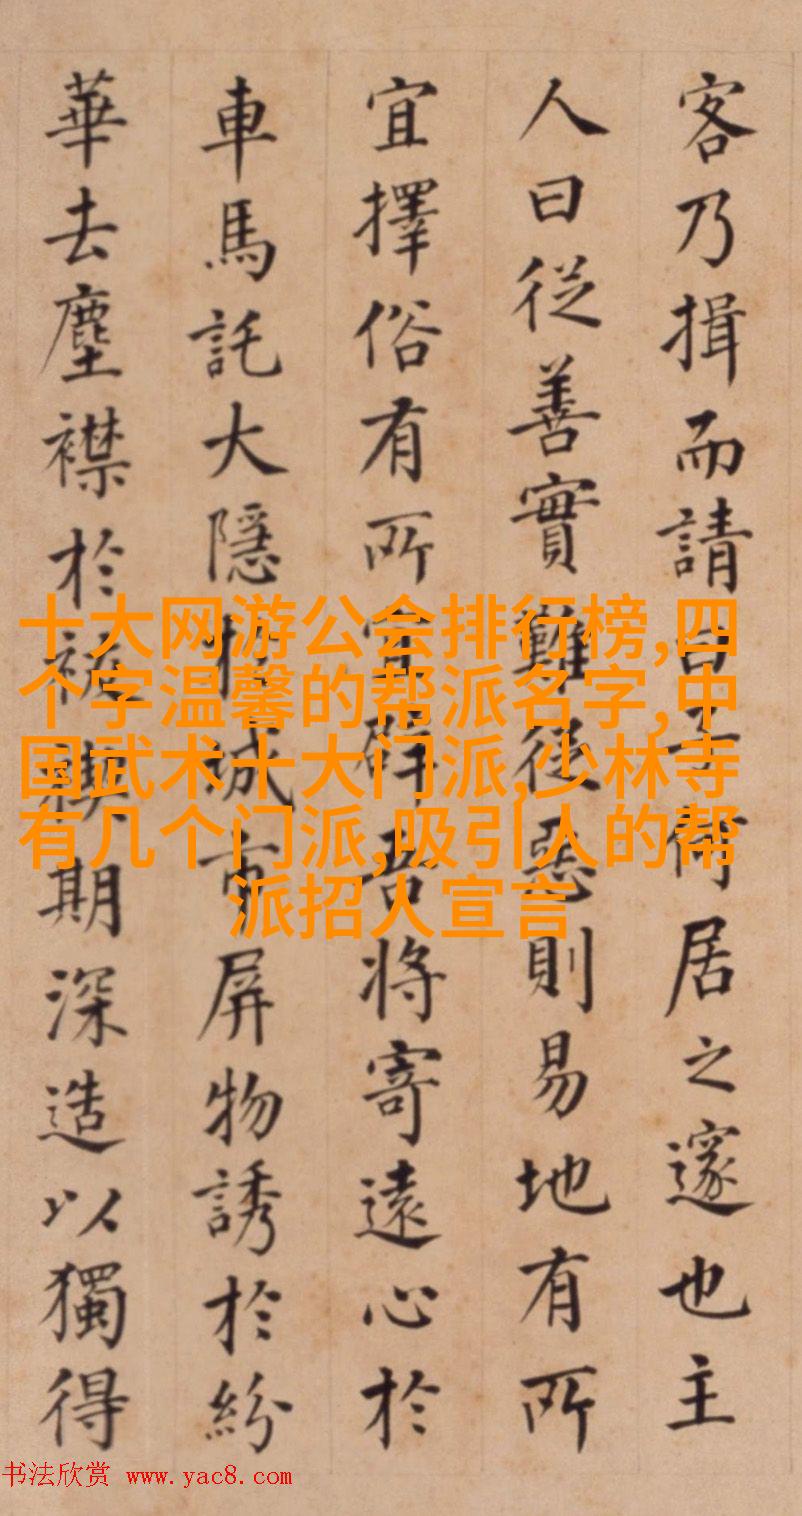 客乃揖而請曰子何居之邃也主
人曰從善實難從惡則易地有所
宜擇俗有所宜辟吾将寄遠心於
車馬託大隱於城市屏物誘於紛
華去塵襟於祓禊期深造以獨得
十大网游公会排行榜,四
个字温馨的帮派名字,中
国武术十大门派,少林寺
有几个门派,吸引人的帮
派招人宣言
书法欣赏 www.yac8.com